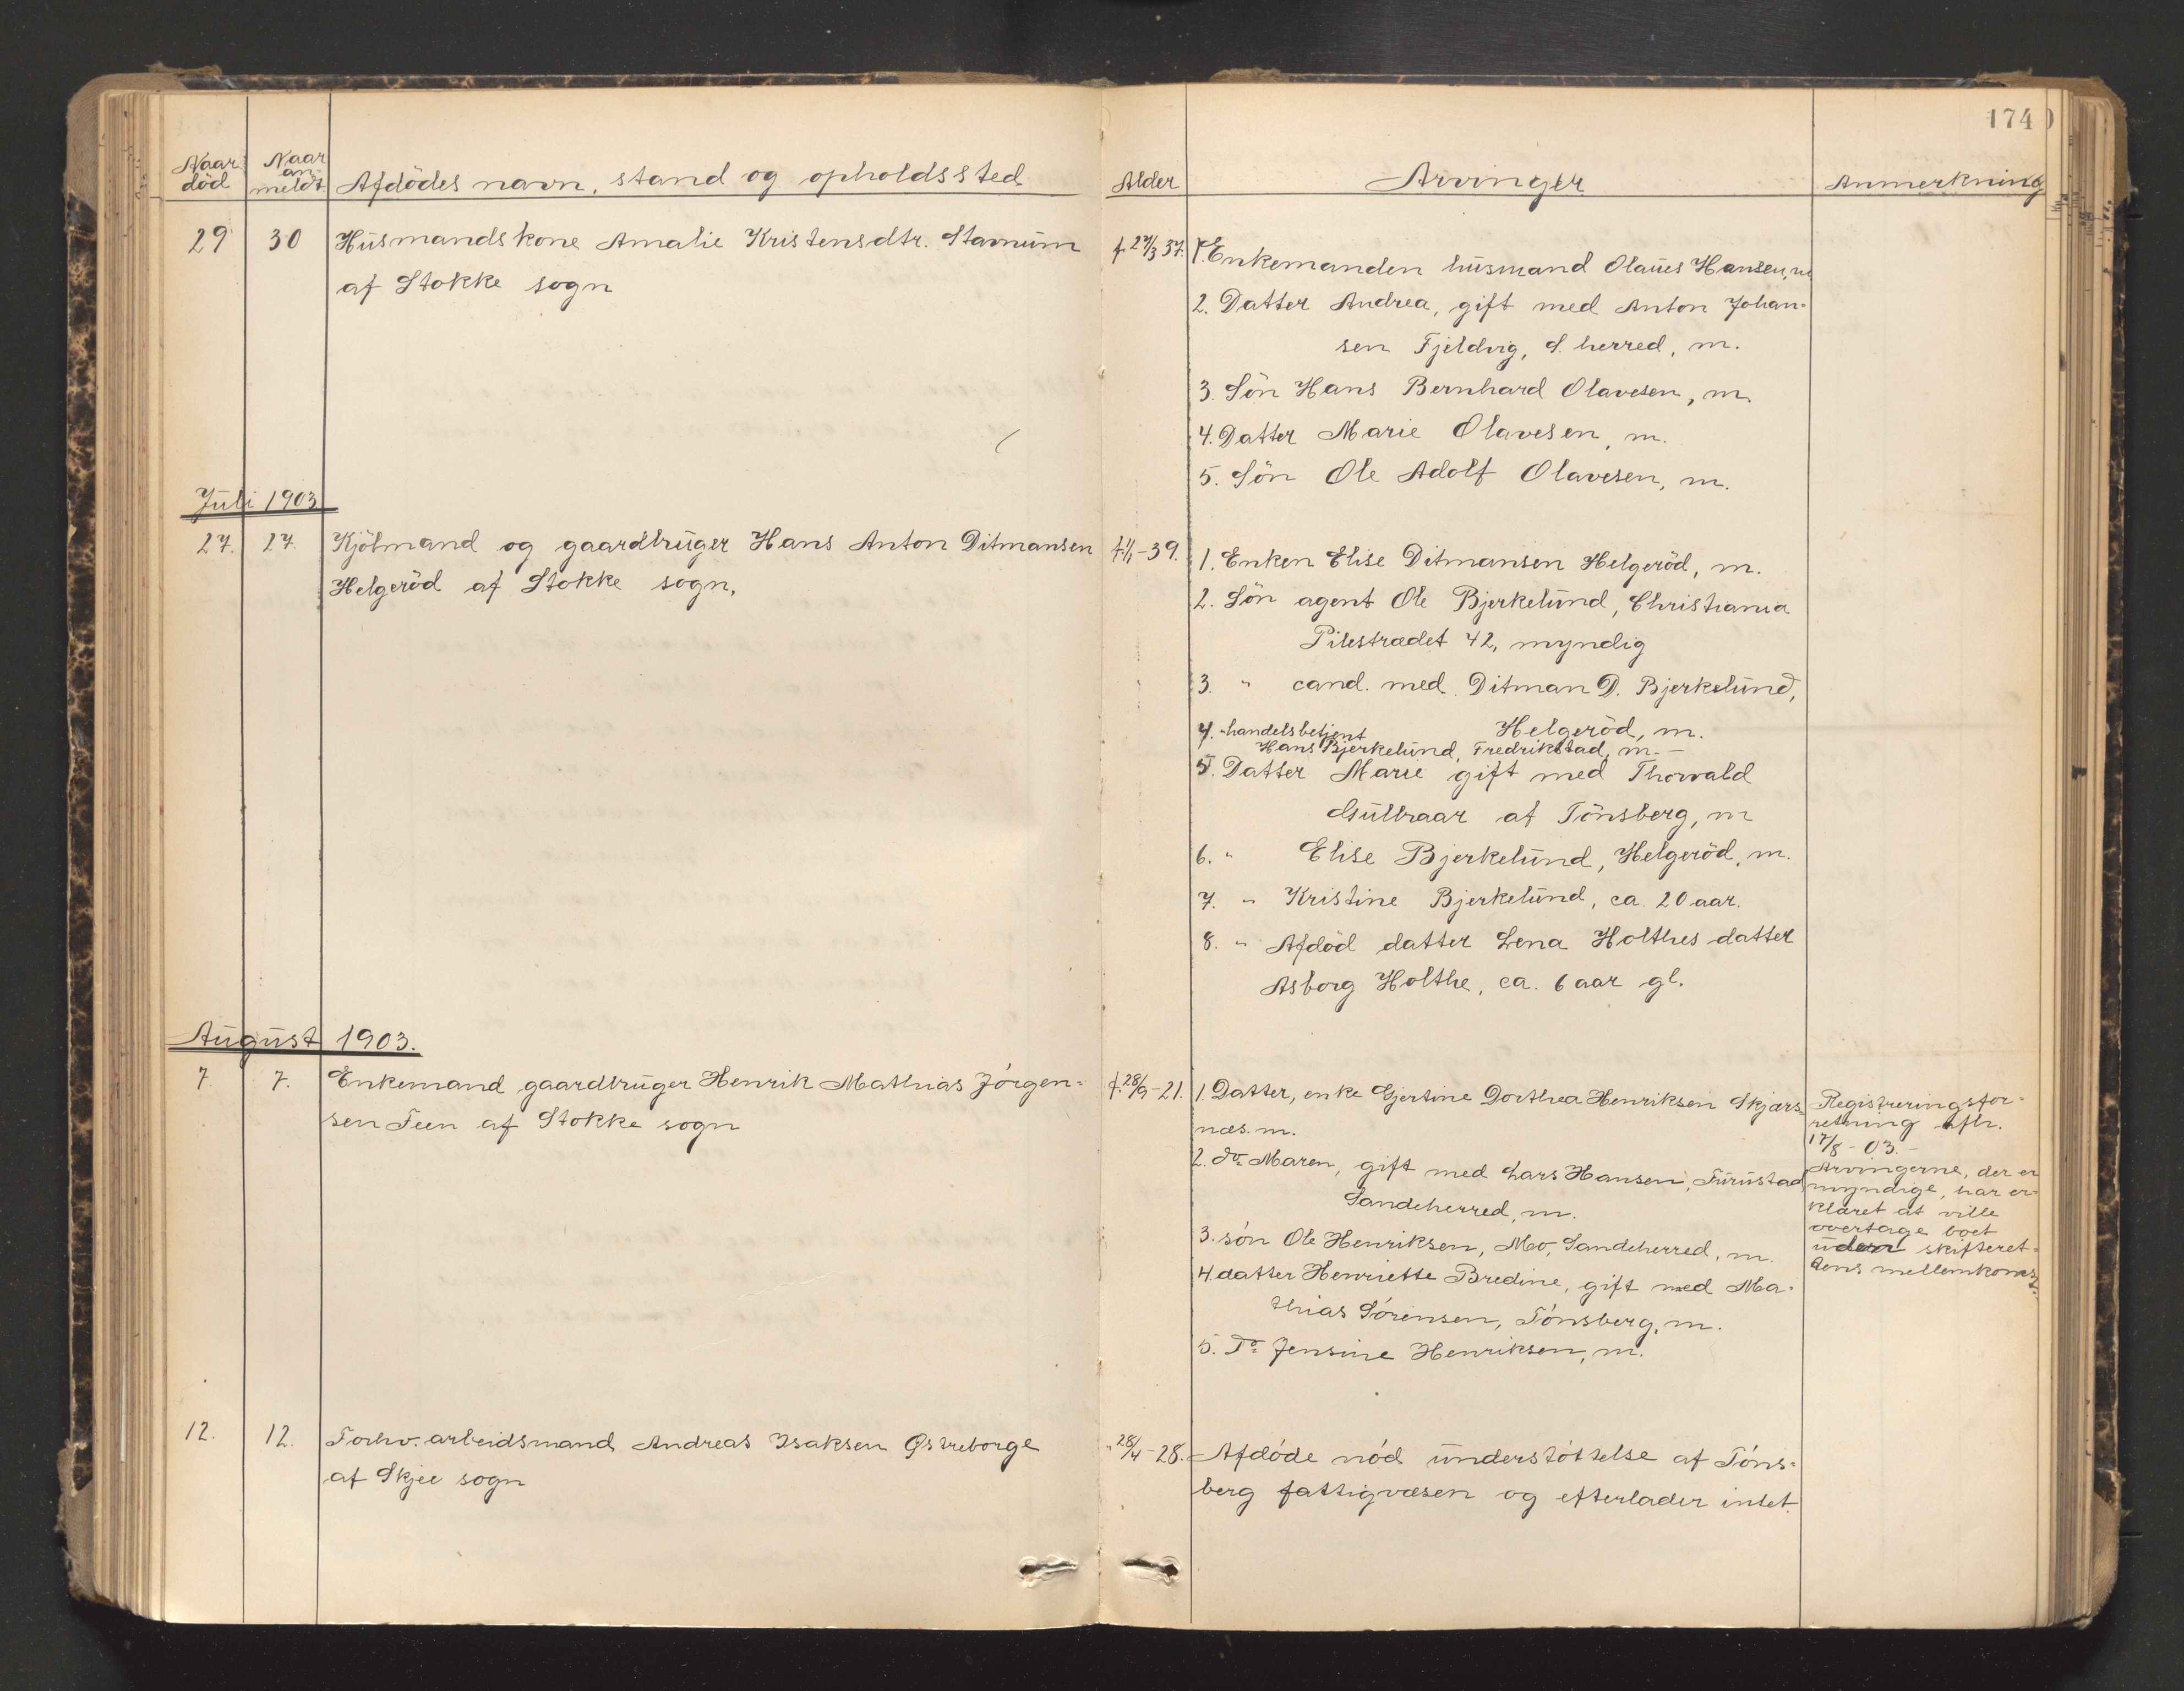 174
Naar død
Naar an- meldt
Afdödes navn, stand og opholdssted
Alder
Arvinger
Anmerkning
29 30 Husmandskone Amalie Kristensdtr. Stavnum
af Stokke sogn
f. 27/3 37. 1. Enkemanden husmand Olaus Hansen, m
2. Datter Andrea, gift med Anton Johan-
sen Fjeldvig, S. herred, m.
3. Sön Hans Bernhard Olavesen, m.
4. Datter Marie Olavesen, m.
5. Sön Ole Adolf Olavesen, m.
Juli 1903
27. 27. Kjöbmand og gaardbruger Hans Anton Ditmansen
Helgeröd af Stokke sogn,
f. 1/1-39. 1. Enken Elise Ditmansen Helgeröd, m.
2. Sön agent Ole Bjerkelund, Christiania
Pilestrædet 42, myndig
3. " cand. med. Ditman D. Bjerkelund,
Helgeröd, m.
4. " handelsbetjent
Hans Bjerkelund, Fredrikstad, m. -
5. Datter Marie gift med Thorvald
Gulbraar af Tönsberg, m
6. " Elise Bjerkelund, Helgeröd, m.
7. " Kristine Bjerkelund, ca. 20 aar.
8. " Afdöd datter Lena Holthes datter
Asborg Holthe, ca. 6 aar gl.
August 1903.
7 7. Enkemand gaardbruger Henrik Mathias Jörgen-
sen Feen af Stokke sogn
f. 28/9-21. 1. Datter, enke Gjertine Dorthea Henriksen Skjærs-
næs. m.
2. do Maren, gift med Lars Hansen, Furustad
Sandeherred, m.
3. sön Ole Henriksen, Mo, Sandeherred, m.
4. datter Henriette Bredine, gift med Ma-
thias Sörensen, Tönsberg, m.
5. Do Jensine Henriksen, m.
Registreringsfor-
retning afh.
17/8-03. -
Arvingerne, der er
myndige, har er-
klæret at ville
overtage boet
uden skifteret-
tens mellemkomst.
12. 12. Forhv. arbeidsmand Andreas Isaksen Østreborge
af Skjee sogn
" 28/4-28. Afdöde nöd understöttelse af Töns-
berg fattigvæsen og efterlader intet.